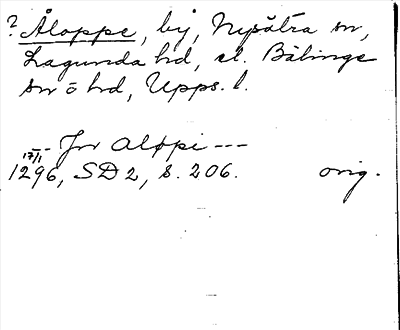 ? Åloppe, by, Nysätra sn,
Lagunda hd, el. Bälinge
sn o hd, Upps. l.
-- Jn Aløpi ---
17/1
1296, SD 2, s. 206. orig.